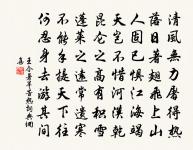 清風無力屠得熱
落日著翅飛上山
人固已懼江海竭
天豈不惜河漢乾
崑崙之高有積雪
蓬萊之遠常遺寒
不能手提天下往
何忍身去游其間
王令暑旱苦熱詞典網
集